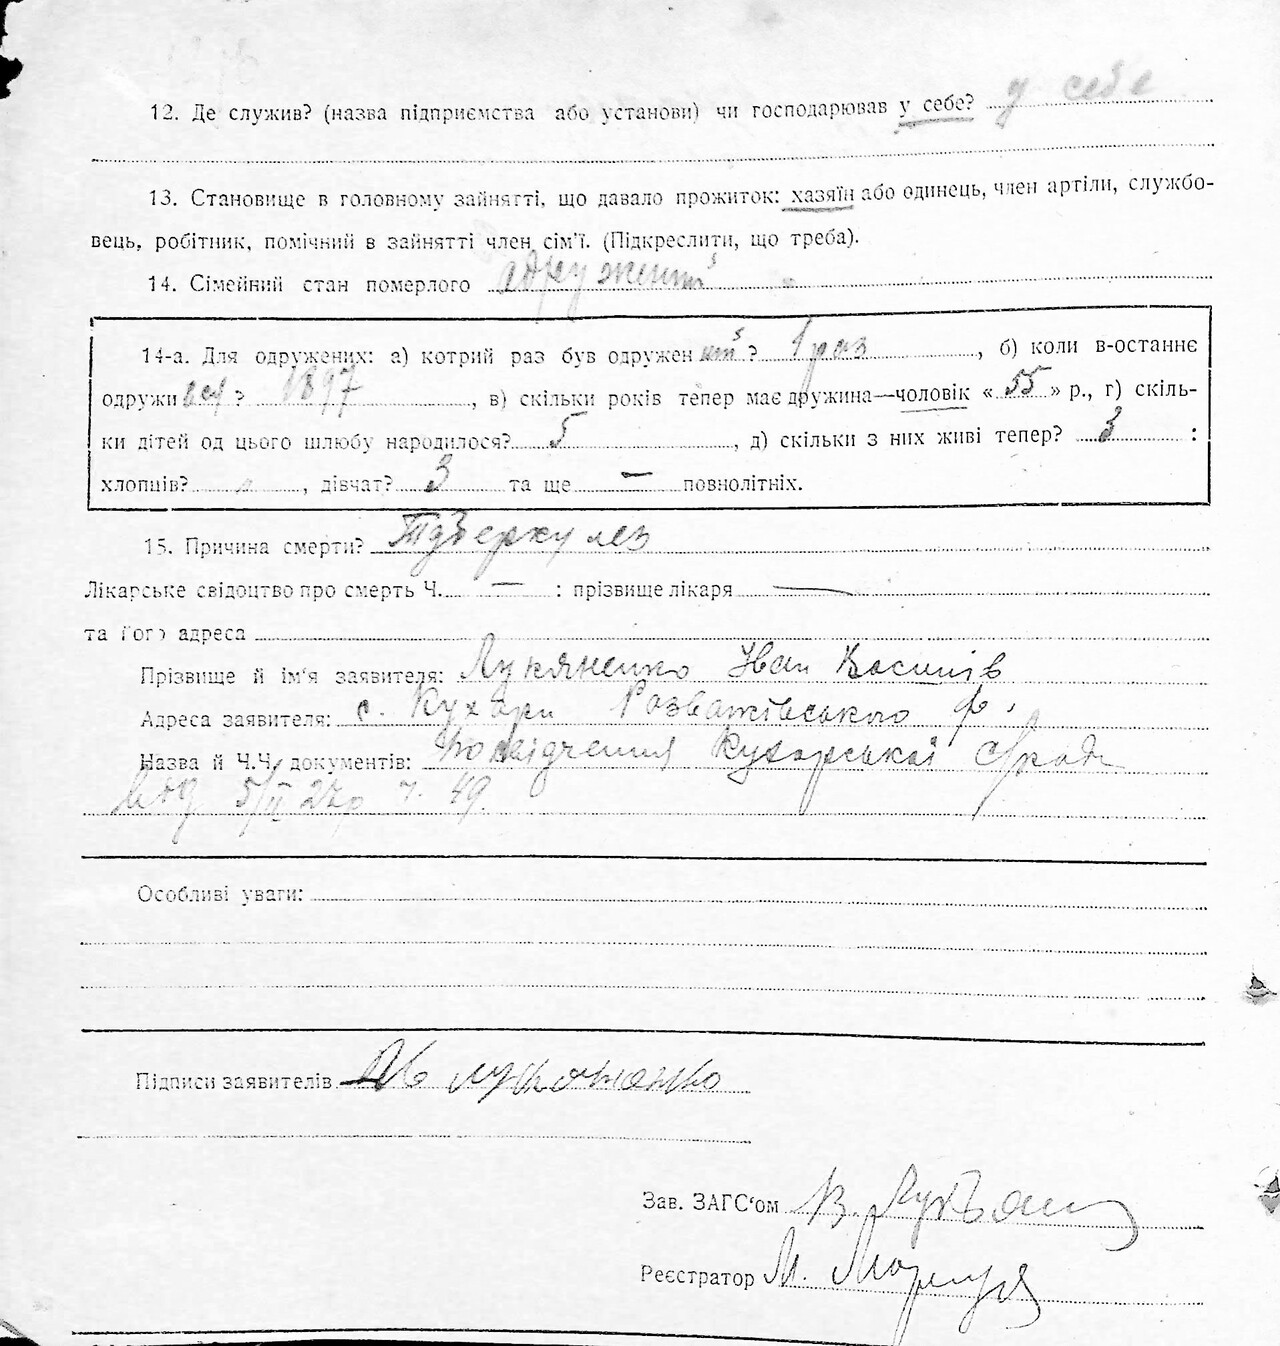 12. Де служив? (назва підприємства або установи) чи господарював у себе? у себе
13. Становище в головному зайнятті, що давало прожиток: хазяїн або одинець, член артіли, службо-
вець, робітник, помічний в зайнятті член сім'ї. (Підкреслити, що треба).
14. Сімейний стан померлого
14-а. Для одружених: а) котрий раз був одружен ? 1 раз , б) коли в-останнє
одружи вся ? 1897 , в) скільки років тепер має дружина—чоловік « 55 » р., г) скіль-
ки дітей од цього шлюбу народилося? 5 , д) скільки з них живі тепер? 3 :
хлопців? , дівчат? 3 та ще — повнолітніх.
15. Причина смерти? Тудеркулез
Лікарське свідоцтво про смерть Ч. — : прізвище лікаря —
та його адреса
Прізвище й ім'я заявителя: Лукяненко Іван Василів
Адреса заявителя: с. Кухари Розважівського р.
Назва й Ч.Ч. документів: Посвідчення Кухарської с/ради
від 5/II 27р ч. 49.
Особливі уваги:
Підписи заявителів
Зав. ЗАГС'ом В.
Реєстратор М.